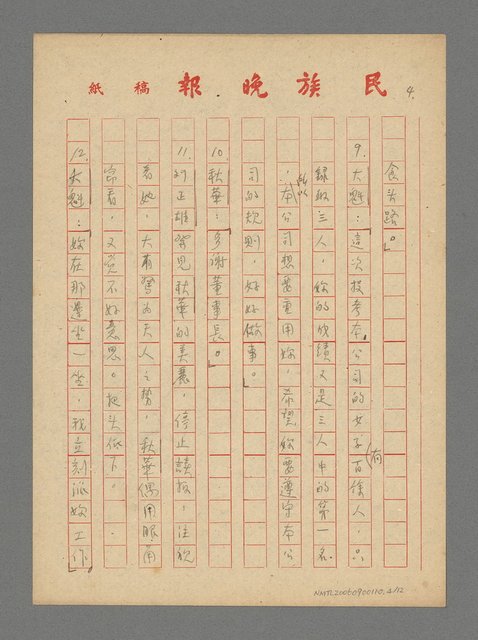 民族晚報 稿紙
4.
食头路。」
9. 大魁：「這次投考本公司的女子(有)百餘人，只
錄取三人，妳的成績又是三人中的第一名
，所以本公司想要重用妳，希望妳要遵守本公
司的規則，好好做事。」
10. 秋華：「多謝董事長。」
11. 劉正雄驚見秋華的美麗，停止談按，注視
看她，大有驚為天人之勢，秋華偶用眼角
帘看，又覺不好意思。把头低下。
12. 大魁：「妳在那邊坐一坐，我立刻派妳工作。」
NMTL20050900110. 4/12